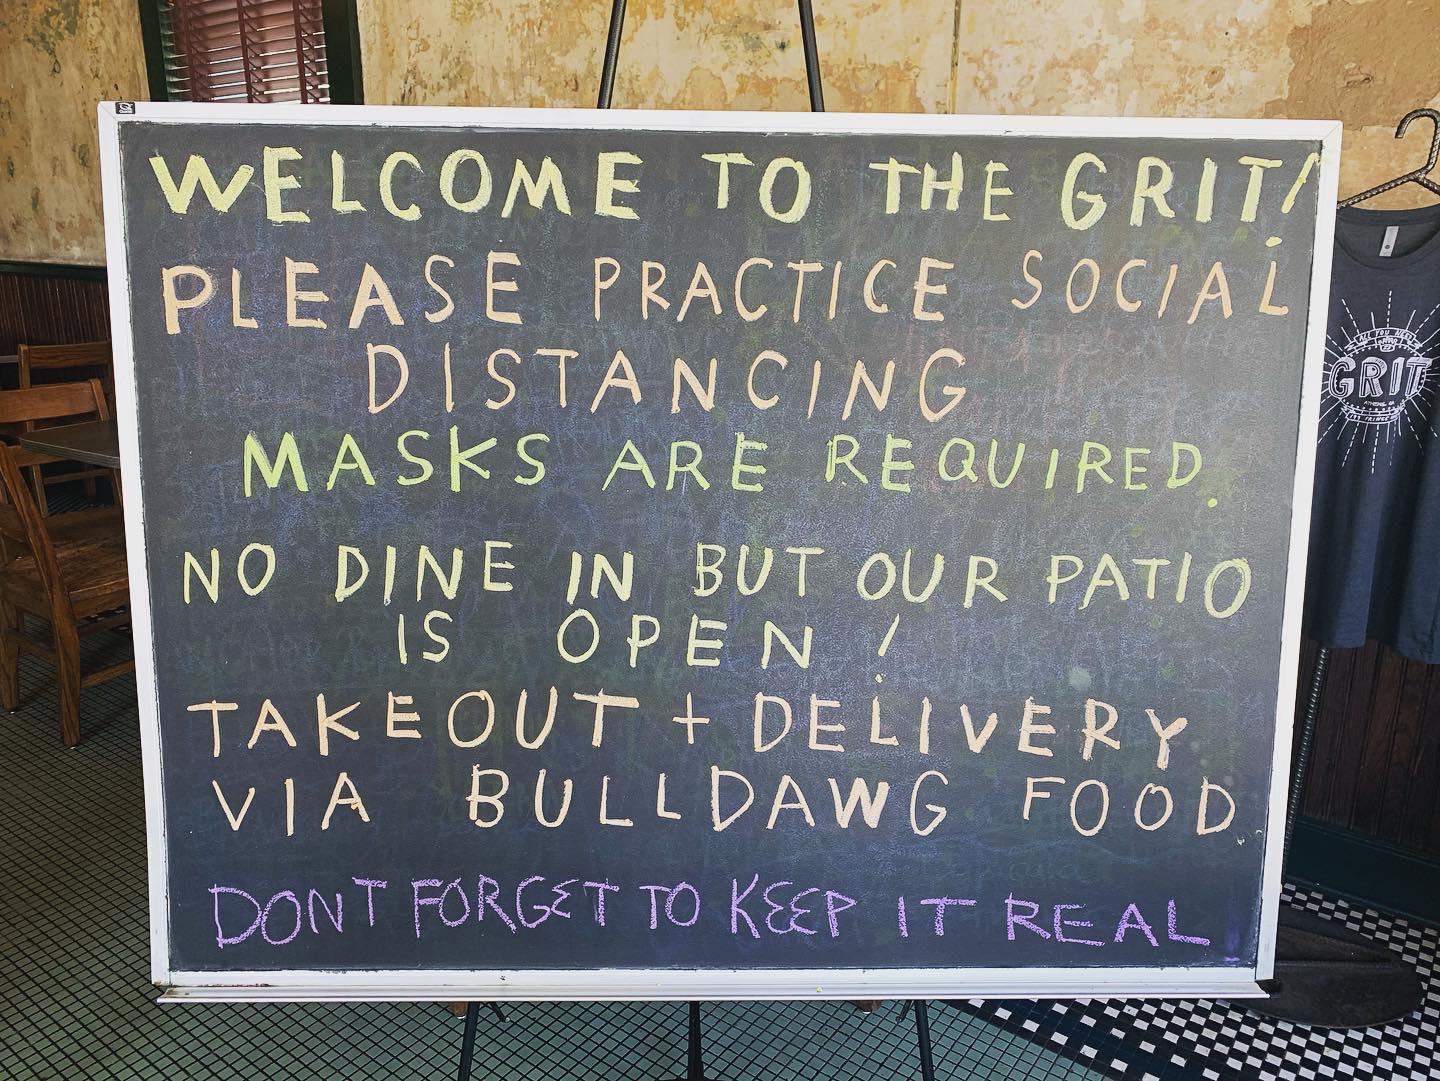 WELCOME TO THE GRIT!
PLEASE PRACTICE SOCIAL
DISTANCING
MASKS ARE REQUIRED.
NO DINE IN BUT OUR PATIO
IS OPEN!
TAKEOUT + DELIVERY
VIA BULLDAWG FOOD
DONT FORGET TO KEEP IT REAL
ALL YOU NEED
GRIT
ATHENS, GA